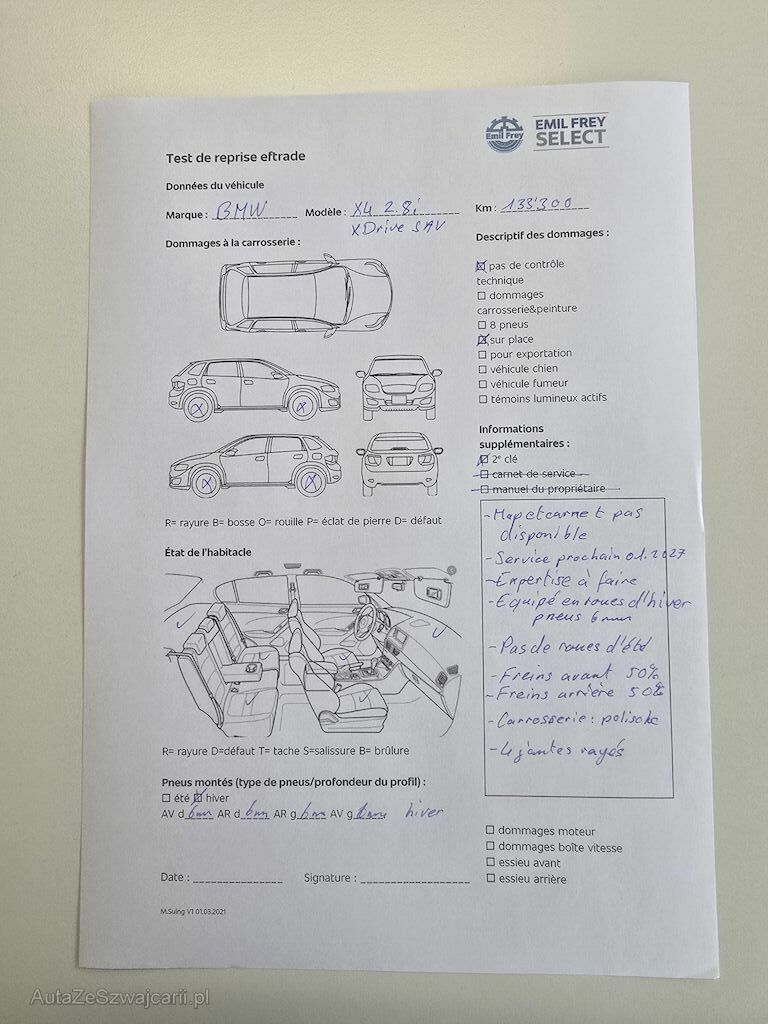 Emil Frey
EMIL FREY
SELECT
Test de reprise eftrade
Données du véhicule
Marque : BMW Modèle : X4 2.8i Km : 133'300
XDrive SAV
Dommages à la carrosserie :
Descriptif des dommages :
☒ pas de contrôle
technique
☐ dommages
carrosserie&peinture
☐ 8 pneus
☒ sur place
☐ pour exportation
☐ véhicule chien
☐ véhicule fumeur
☐ témoins lumineux actifs
X X
X X
Informations
supplémentaires :
☒ 2e clé
☐ carnet de service
☐ manuel du propriétaire
R= rayure B= bosse O= rouille P= éclat de pierre D= défaut
État de l'habitacle
- Map et carnet pas
disponible
- Service prochain 01.2027
- Expertise à faire
- Equipé en roues d'hiver
pneus 6mm
- Pas de roues d'été
- Freins avant 50%
- Freins arrière 50%
- Carrosserie : polische
- 4 jantes rayés
R= rayure D=défaut T= tache S=salissure B= brûlure
Pneus montés (type de pneus/profondeur du profil) :
☐ été ☒ hiver
AV d 6mm AR d 6mm AR g 6mm AV g 6mm hiver
☐ dommages moteur
☐ dommages boîte vitesse
☐ essieu avant
☐ essieu arrière
Date : Signature :
M.Suing V1 01.03.2021
AutaZeSzwajcarii.pl